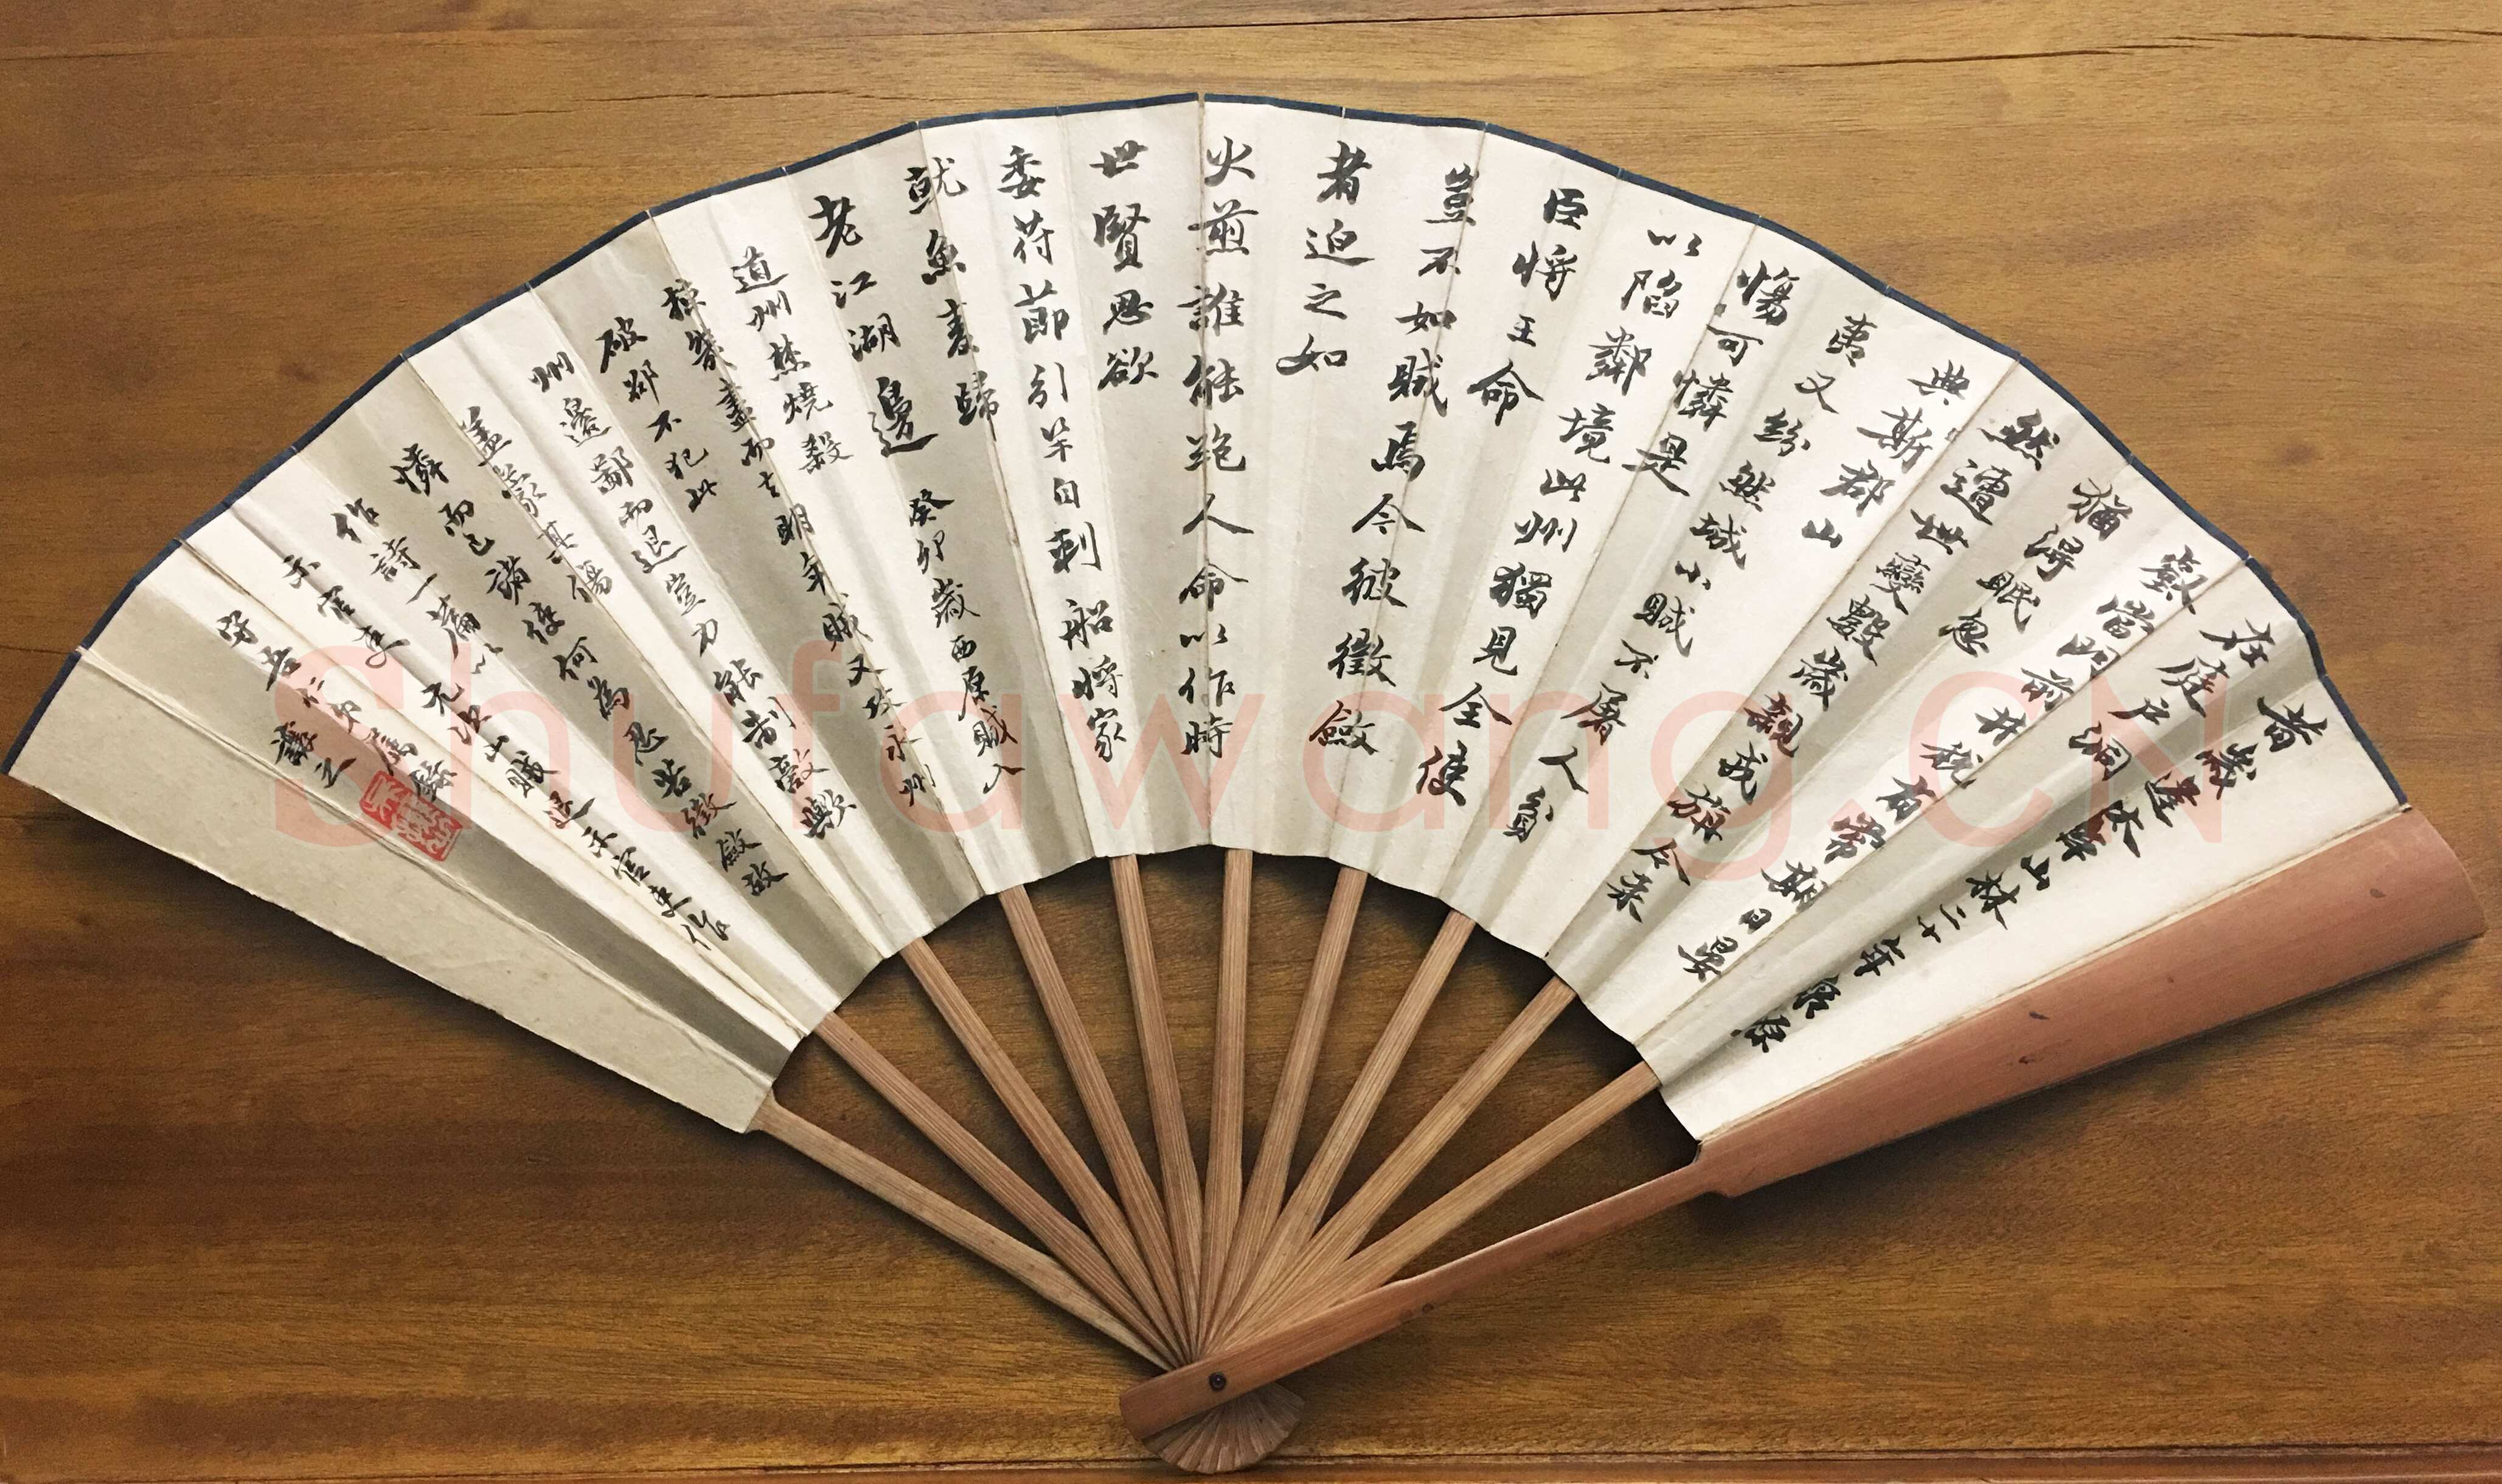 昔歲逢太平山林二十年泉源
在庭戶洞
壑當門前井稅有常期日晏
猶得眠忽
然遭世變數歲親戎旃今来
典斯郡山
夷又紛然城小賊不屠人貧
傷可憐是
以陷鄰境此州獨見全使
臣將王命
豈不如賊焉今彼徵斂
者迫之如
火煎誰能絕人命以作時
世賢思欲
委苻節引竿自刺船將家
就魚麦歸
老江湖邊 癸卯歲西原賊入
道州焚燒殺
掠幾盡而去明年賊又攻永州
破邵不犯此
州邊鄙而退豈力能制敵歟
蓋蒙其傷
憐而已諸使何為忍苦徵斂故
作詩一篇以
示官吏 元次山賊退示官吏作
守吾仁弟属錄
彝之
Shufawang.CN